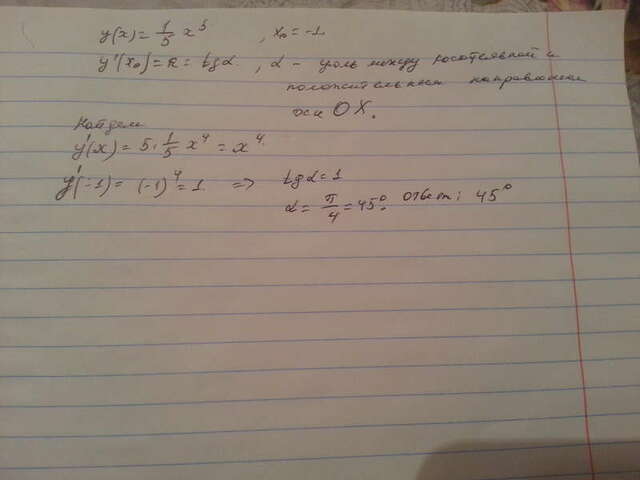 y(x) = 1/5 x⁵, x₀ = -1
y'(x₀) = k = tgα, α - угол между касательной и
положительным направлением
оси OX.
Найдем
y'(x) = 5·1/5 x⁴ = x⁴
y'(-1) = (-1)⁴ = 1 => tgα = 1
α = π/4 = 45°. ответ: 45°